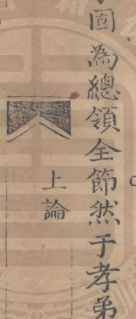 固為總領全節然于孝弟
上論